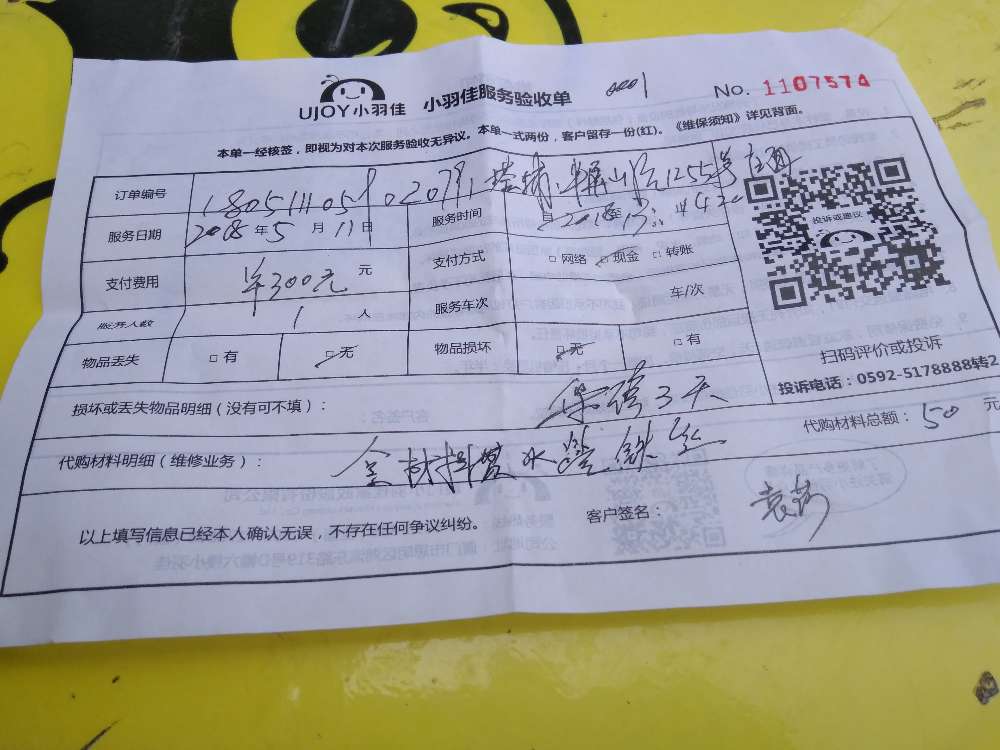 UJOY小羽佳 小羽佳服务验收单 0001 No. 1107574
本单一经核签，即视为对本次服务验收无异议。本单一式两份，客户留存一份(红)。《维保须知》详见背面。
订单编号 180511105 02079 1255号
服务日期 2018年5月11日 服务时间 自 至
投诉或建议
支付费用 ¥300元 元 支付方式 □网络 ☑现金 □转账
服务人数 1 人 服务车次 车/次
物品丢失 □有 ☑无 物品损坏 ☑无 □有
扫码评价或投诉
投诉电话：0592-5178888转2
损坏或丢失物品明细(没有可不填)： 3天
代购材料总额：50元
代购材料明细(维修业务)： 水管 铁丝
以上填写信息已经本人确认无误，不存在任何争议纠纷。 客户签名：